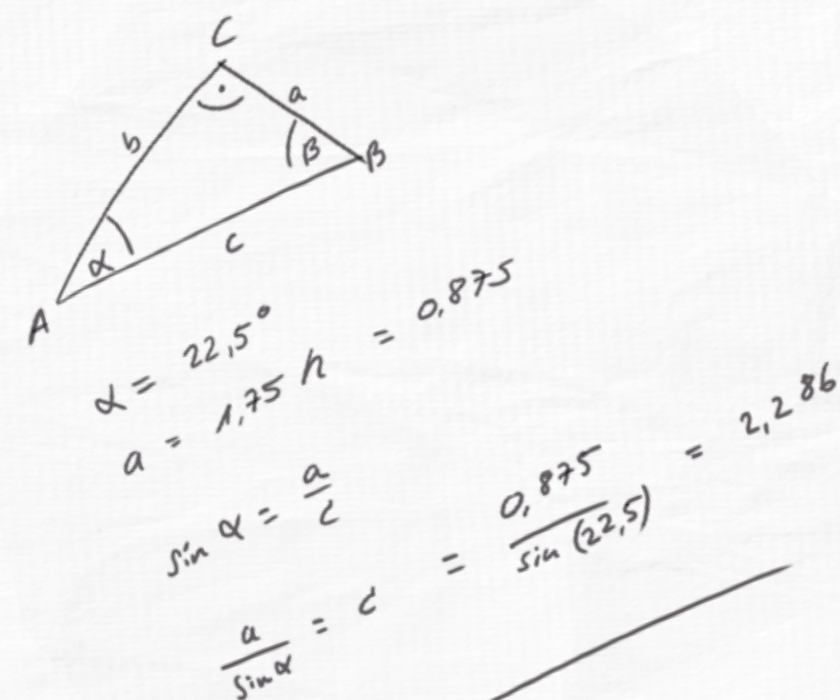 C
a
b
β B
c
α
A
α = 22,5°
a = 1,75 h = 0,875
sin α = a/c
a/sin α = c = 0,875/sin (22,5) = 2,286